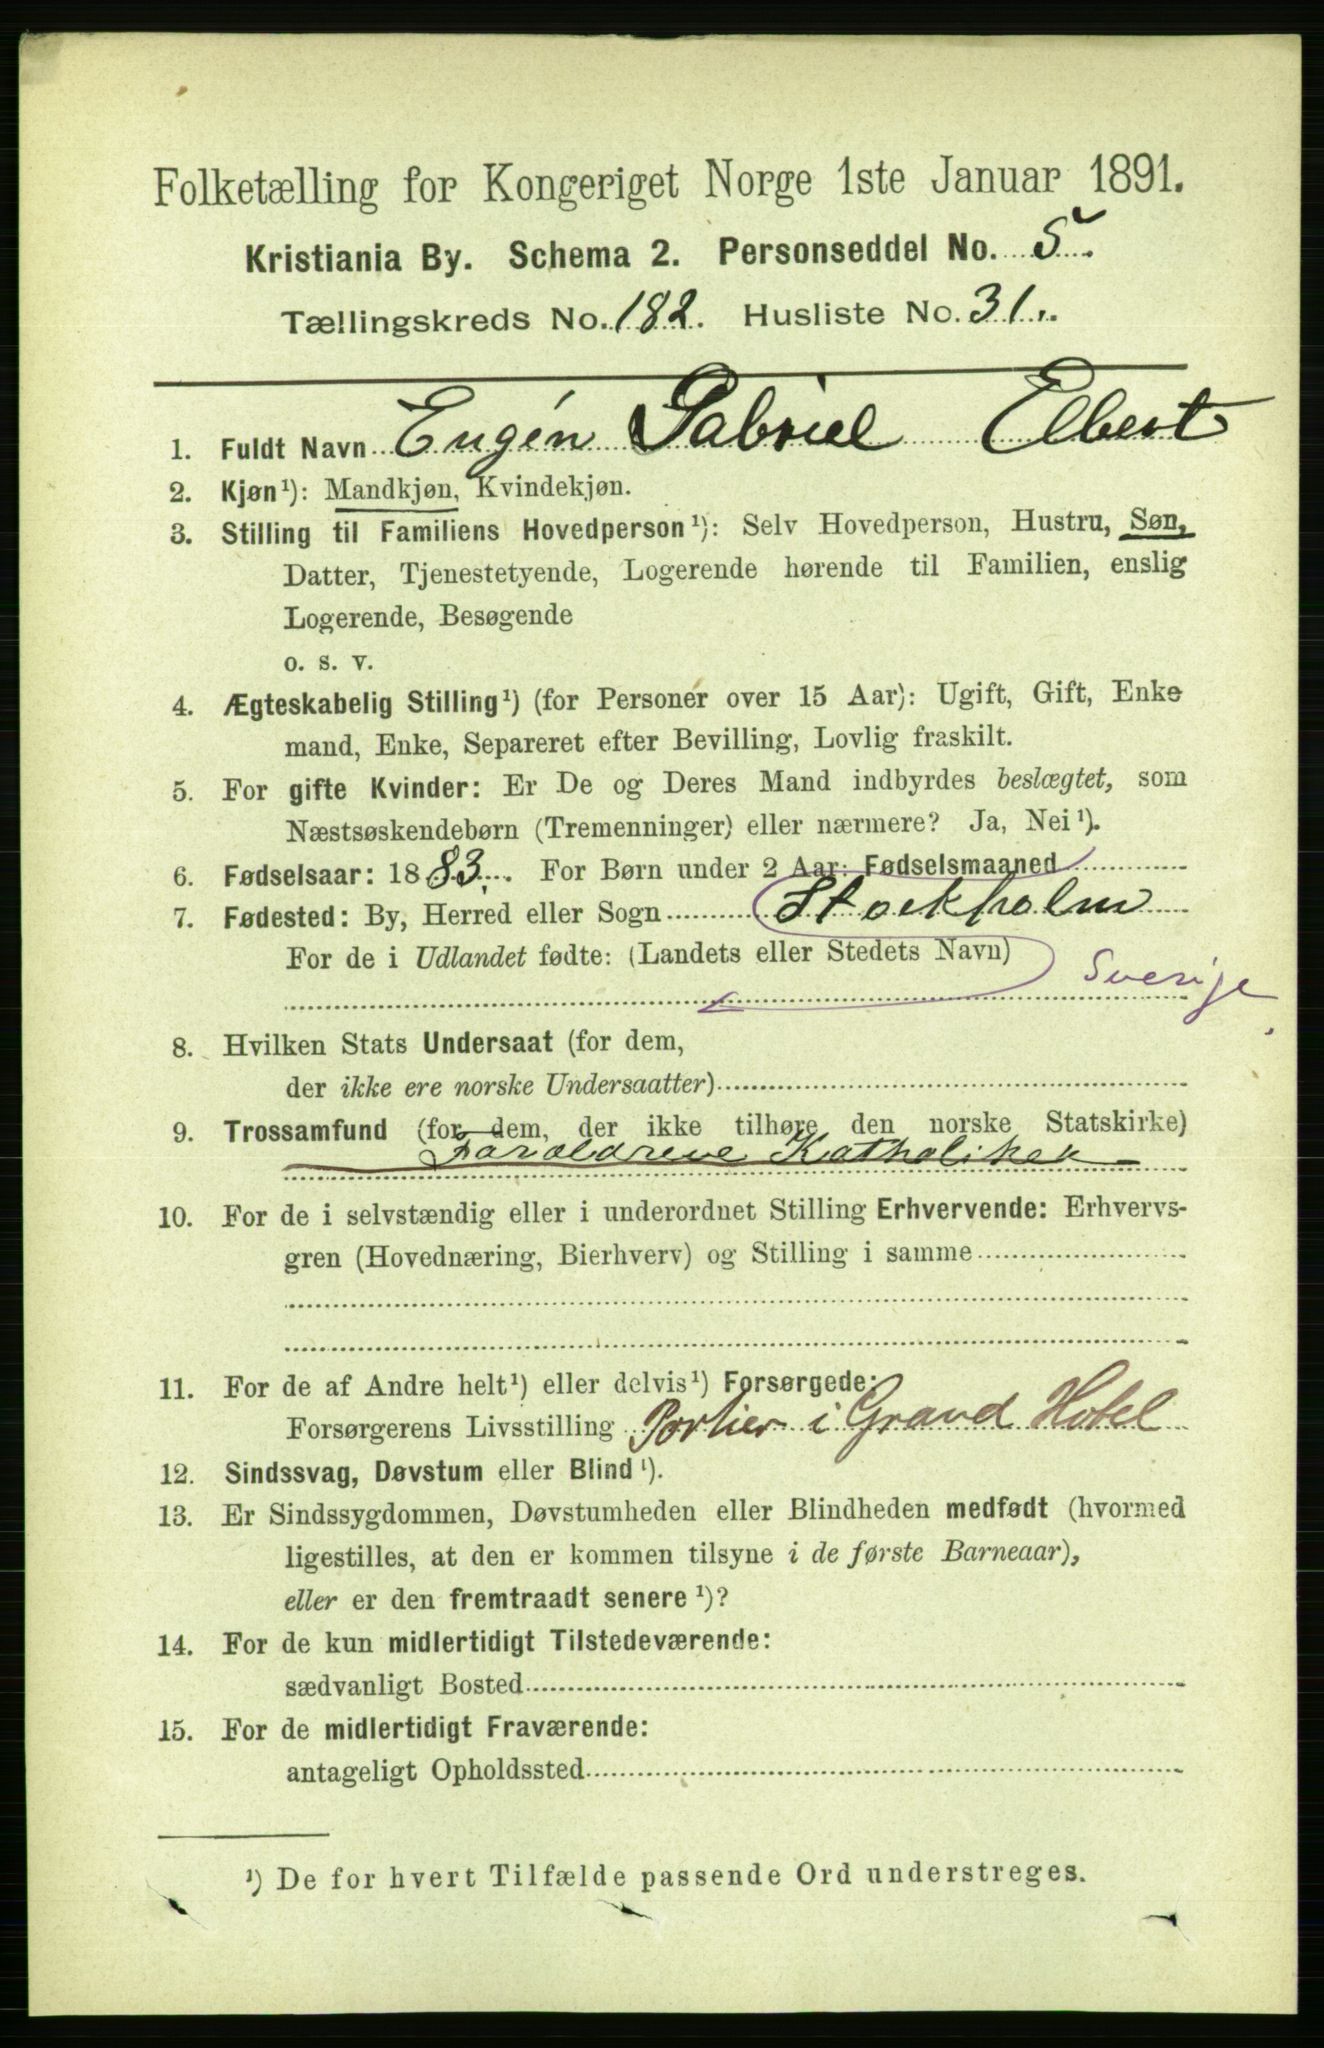 Folketælling for Kongeriget Norge 1ste Januar 1891.
Kristiania By. Schema 2. Personseddel No. 5.
Tællingskreds No. 182. Husliste No. 31.
1. Fuldt Navn Eugén Gabriel Elbert
2. Kjøn¹): Mandkjøn, Kvindekjøn.
3. Stilling til Familiens Hovedperson¹): Selv Hovedperson, Hustru, Søn,
Datter, Tjenestetyende, Logerende hørende til Familien, enslig
Logerende, Besøgende
o. s. v.
4. Ægteskabelig Stilling¹) (for Personer over 15 Aar): Ugift, Gift, Enke
mand, Enke, Separeret efter Bevilling, Lovlig fraskilt.
5. For gifte Kvinder: Er De og Deres Mand indbyrdes beslægtet, som
Næstsøskendebørn (Tremenninger) eller nærmere? Ja, Nei¹).
6. Fødselsaar: 1883. For Børn under 2 Aar: Fødselsmaaned
7. Fødested: By, Herred eller Sogn Stockholm
For de i Udlandet fødte: (Landets eller Stedets Navn) Sverige
8. Hvilken Stats Undersaat (for dem,
der ikke ere norske Undersaatter)
9. Trossamfund (for dem, der ikke tilhøre den norske Statskirke)
Forældrene Katholiker
10. For de i selvstændig eller i underordnet Stilling Erhvervende: Erhvervs-
gren (Hovednæring, Bierhverv) og Stilling i samme
11. For de af Andre helt¹) eller delvis¹) Forsørgede:
Forsørgerens Livsstilling Portier i Grand Hotel
12. Sindssvag, Døvstum eller Blind¹).
13. Er Sindssygdommen, Døvstumheden eller Blindheden medfødt (hvormed
ligestilles, at den er kommen tilsyne i de første Barneaar),
eller er den fremtraadt senere¹)?
14. For de kun midlertidigt Tilstedeværende:
sædvanligt Bosted
15. For de midlertidigt Fraværende:
antageligt Opholdssted
¹) De for hvert Tilfælde passende Ord understreges.